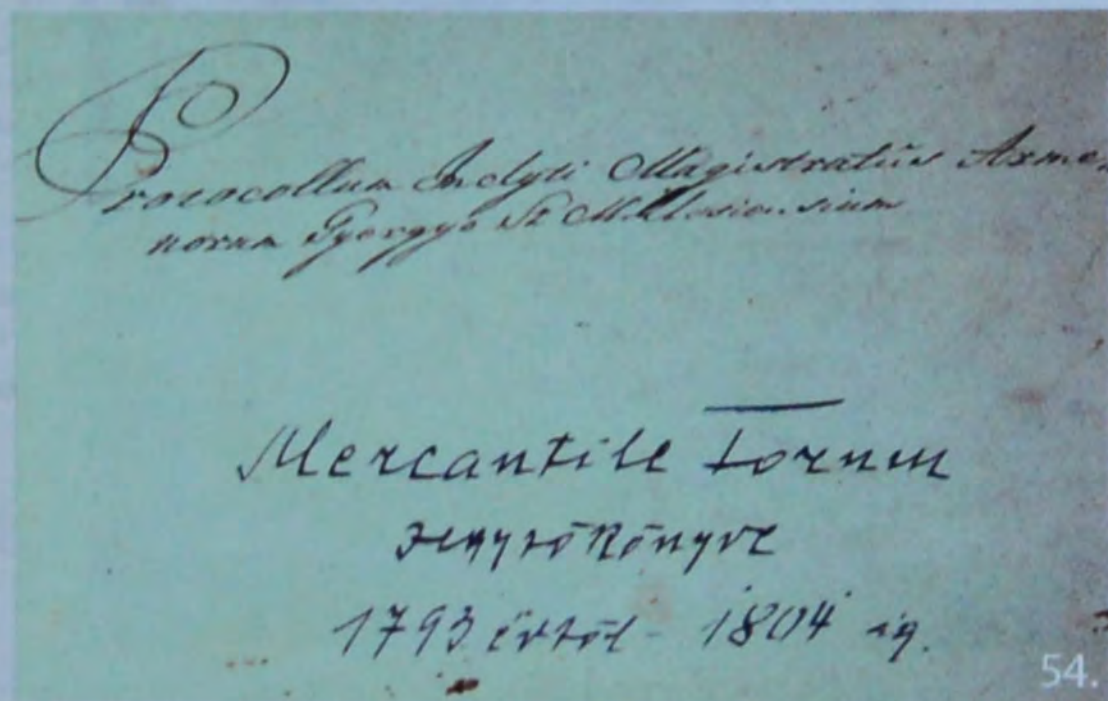 Protocollum Inclyti Magistratûs Arme-
norum Gyergyó Sz Miklosiensium
Mercantile Forum
Jegyzőkönyve
1793 évtől - 1804 ig.
54.